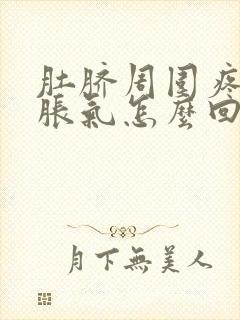 肚脐周围疼
胀氣怎麼回
月下無美人